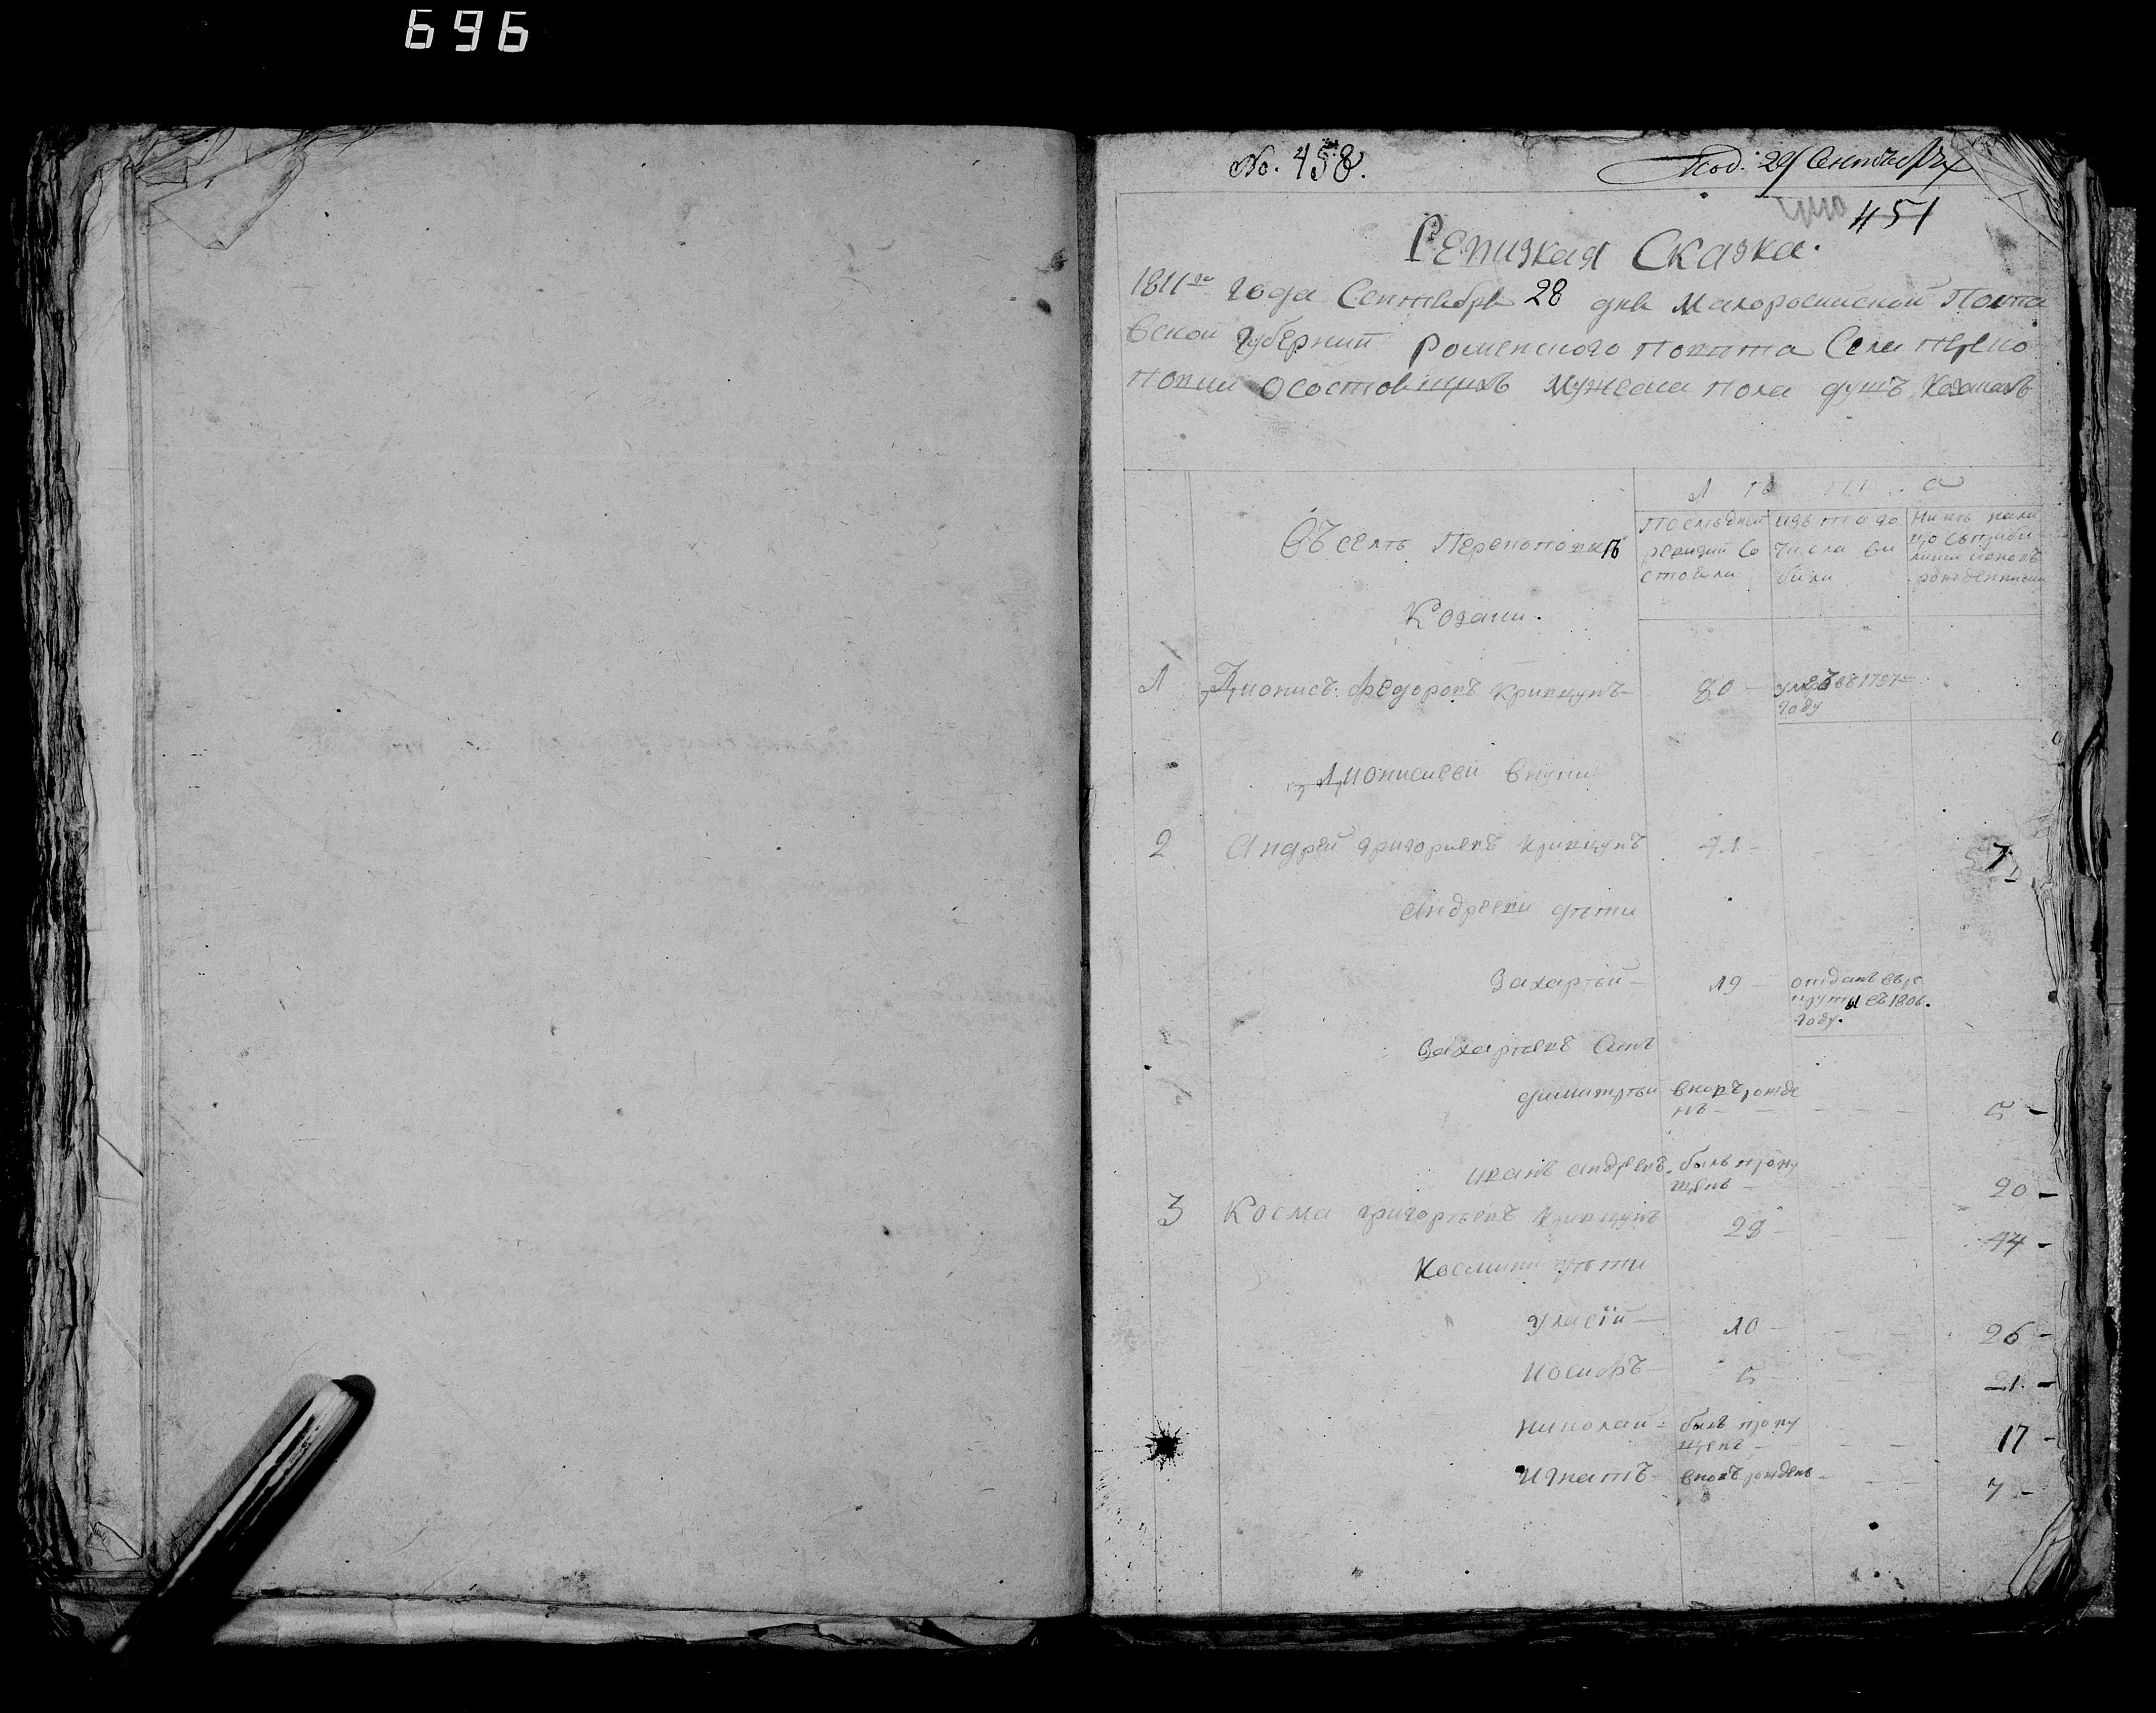 696
No. 458.
Под: 29 Сентября
451
Ревизкая Сказка.
1811го Года Сентября 28 дня Малоросииской Полта
вской Губернии Роменского Повѣта Села Перено
повки о состоящихъ Мужеска Пола душъ Козакахъ
Лѣта
Въ селѣ Перекоповкѣ
Последней ревизии состояли
изъ того числа выбыли
Козаки.
1 Дионисъ Федоровъ Кривцунъ 80 - умре въ 1797 году
Дионисиеви внуки
2 Андрей Григориевъ Кривцунъ 41 -
Андрееви дѣти
Захарѣй - 19 - отданъ въ рекруты въ 1806. году.
Захарѣевъ Синъ
Димитрѣй вновъ рожденъ - 5 -
Иванъ Андреевъ. былъ пропущенъ - 20 -
3 Косма Григорѣевъ Кривцунъ 28 - 44 -
Космини дѣти
Уласій - 10 - 26 -
Иосифъ - 5 - 21. -
Николай - былъ пропущенъ - 17 -
Игнатъ - вновъ рожденъ - 7 -